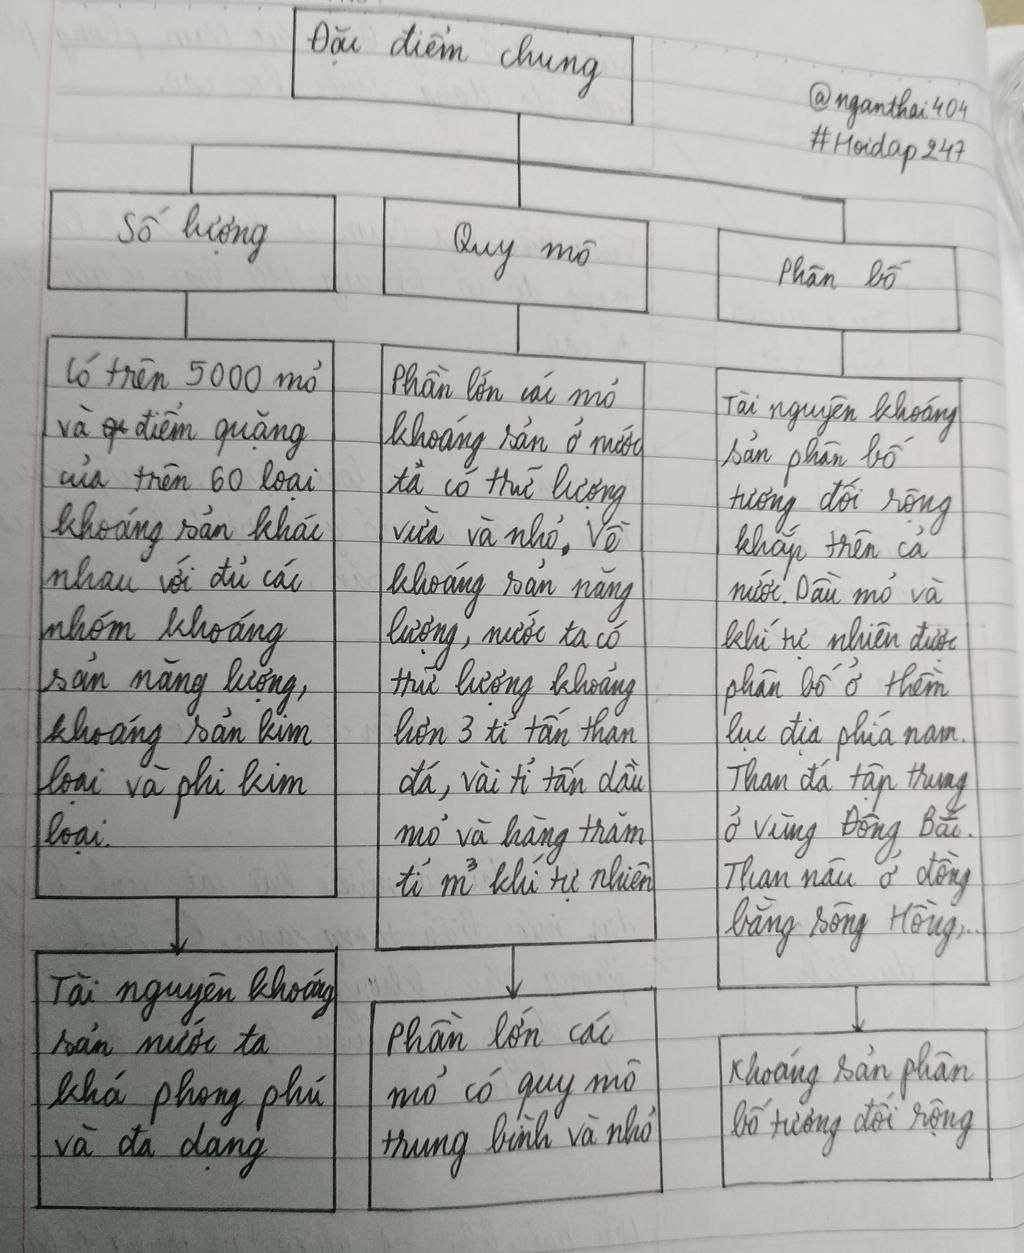 Đặc điểm chung
@nganthai404
#Hoidap247
Số lượng
Quy mô
Phân bố
Có trên 5000 mỏ
và điểm quặng
của trên 60 loại
khoáng sản khác
nhau với đủ các
nhóm khoáng
sản năng lượng,
khoáng sản kim
loại và phi kim
loại.
Phần lớn các mỏ
khoáng sản ở nước
ta có trữ lượng
vừa và nhỏ. Về
khoáng sản năng
lượng, nước ta có
trữ lượng khoảng
hơn 3 tỉ tấn than
đá, vài tỉ tấn dầu
mỏ và hàng trăm
tỉ m³ khí tự nhiên
Tài nguyên khoáng
sản phân bố
tương đối rộng
khắp trên cả
nước. Dầu mỏ và
khí tự nhiên được
phân bố ở thềm
lục địa phía nam.
Than đá tập trung
ở vùng Đông Bắc.
Than nâu ở đồng
bằng sông Hồng,...
Tài nguyên khoáng
sản nước ta
khá phong phú
và đa dạng
Phần lớn các
mỏ có quy mô
trung bình và nhỏ
Khoáng sản phân
bố tương đối rộng